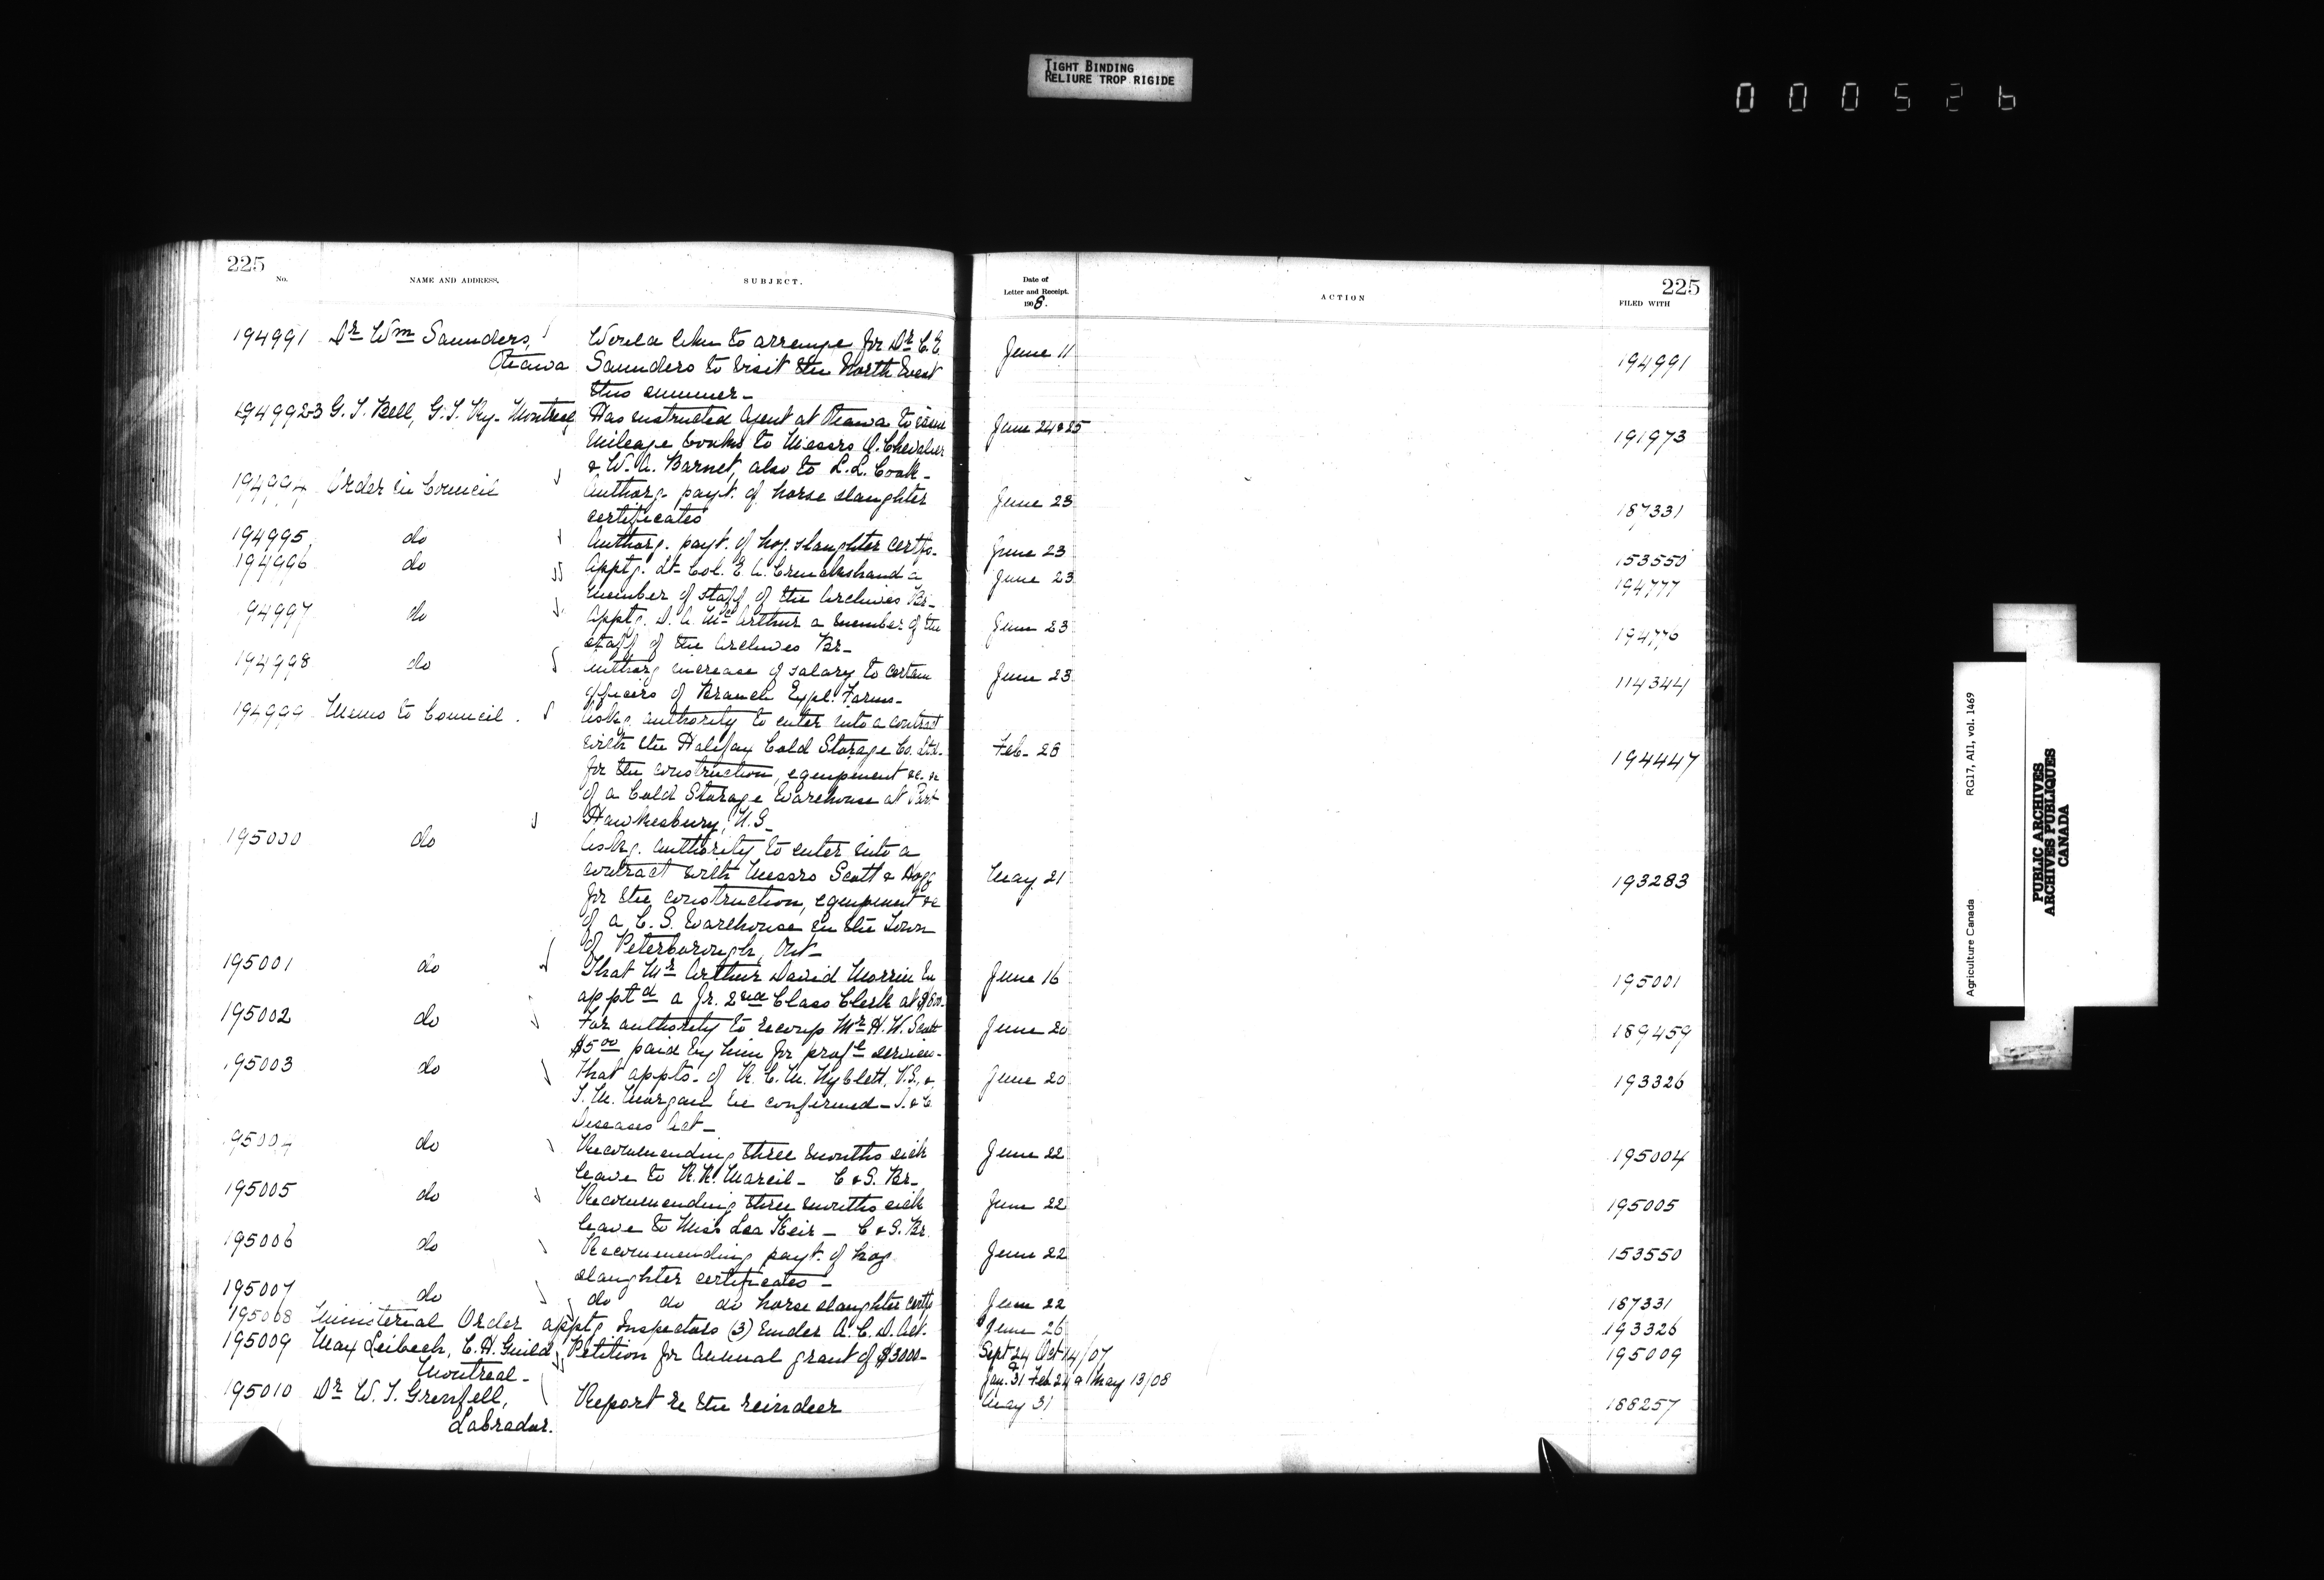 TIGHT BINDING
RELIURE TROP RIGIDE
000526
225
No.
NAME AND ADDRESS.
SUBJECT.
194991 Dr Wm Saunders, Ottawa
Would like to arrange for Dr C. E.
Saunders to visit the North West
this summer-
1949923 G. T. Bell, G. T. Ry- Montreal
Has instructed Agent at Ottawa to issue
mileage books to Messrs A. Chevalier
& W. A. Barnet, also to L. L. Cook-
194994 Order in Council
Authorg. payt. of horse slaughter
certificates
194995 do
Authorg. payt. of hog slaughter certfs.
194996 do
Apptg. Lt-Col. E. A. Cruikshank a
member of staff of the Archives Br-
94997 do
Apptg. D. A. McArthur a member of the
staff of the Archives Br-
194998 do
Authorg increase of salary to certain
officers of Branch Expl. Farms-
194999 Memo to Council.
Askg. authority to enter into a contract
with the Halifax Cold Storage Co. Ltd.
for the construction, equipment &c. &c
of a Cold Storage Warehouse at Port
Hawkesbury, N.S-
195000 do
Askg. authority to enter into a
contract with Messrs Scott & Hogg
for the construction, equipment &c
of a C. S. Warehouse in the Town
of Peterborough, Ont-
195001 do
That Mr Arthur David Morrin be
apptd a Jr. 2nd Class Clerk at $800-
195002 do
For authority to recoup Mr H. W. Scott
$5 00 paid by him for profl services-
195003 do
That appts. of R. C. M. Nyblett, V.S., &
T. M. Morgan be confirmed-
Diseases Act-
95004 do
Recommending three months sick
leave to Mareil- C & S. Br-
195005 do
Recommending three months sick
leave to Miss Lea Keir- C & S. Br.
195006 do
Recommending payt. of hog
slaughter certificates-
195007 do
do do do horse slaughter certfs
195008 Ministerial Order apptg Inspectors (3) under A. C. D. Act.
195009 Max Leibech, C. H. Guild, Montreal-
Petition for Annual grant of $3000-
195010 Dr W. T. Grenfell, Labrador.
Report re the reindeer
Date of
Letter and Receipt.
1908.
ACTION
225
FILED WITH
June 11 194991
June 24 & 25 191973
June 23 187331
June 23 153550
June 23 194777
June 23 194776
June 23 114344
Feb- 28 194447
May 21 193283
June 16 195001
June 20 189459
June 20 193326
June 22 195004
June 22 195005
June 22 153550
June 22 187331
June 26 193326
Sept 24 Oct 14/07 195009
Jan. 31 Feb 24 & May 13/08
May 31 188257
Agriculture Canada RG17, AI1, vol. 1469
PUBLIC ARCHIVES
ARCHIVES PUBLIQUES
CANADA